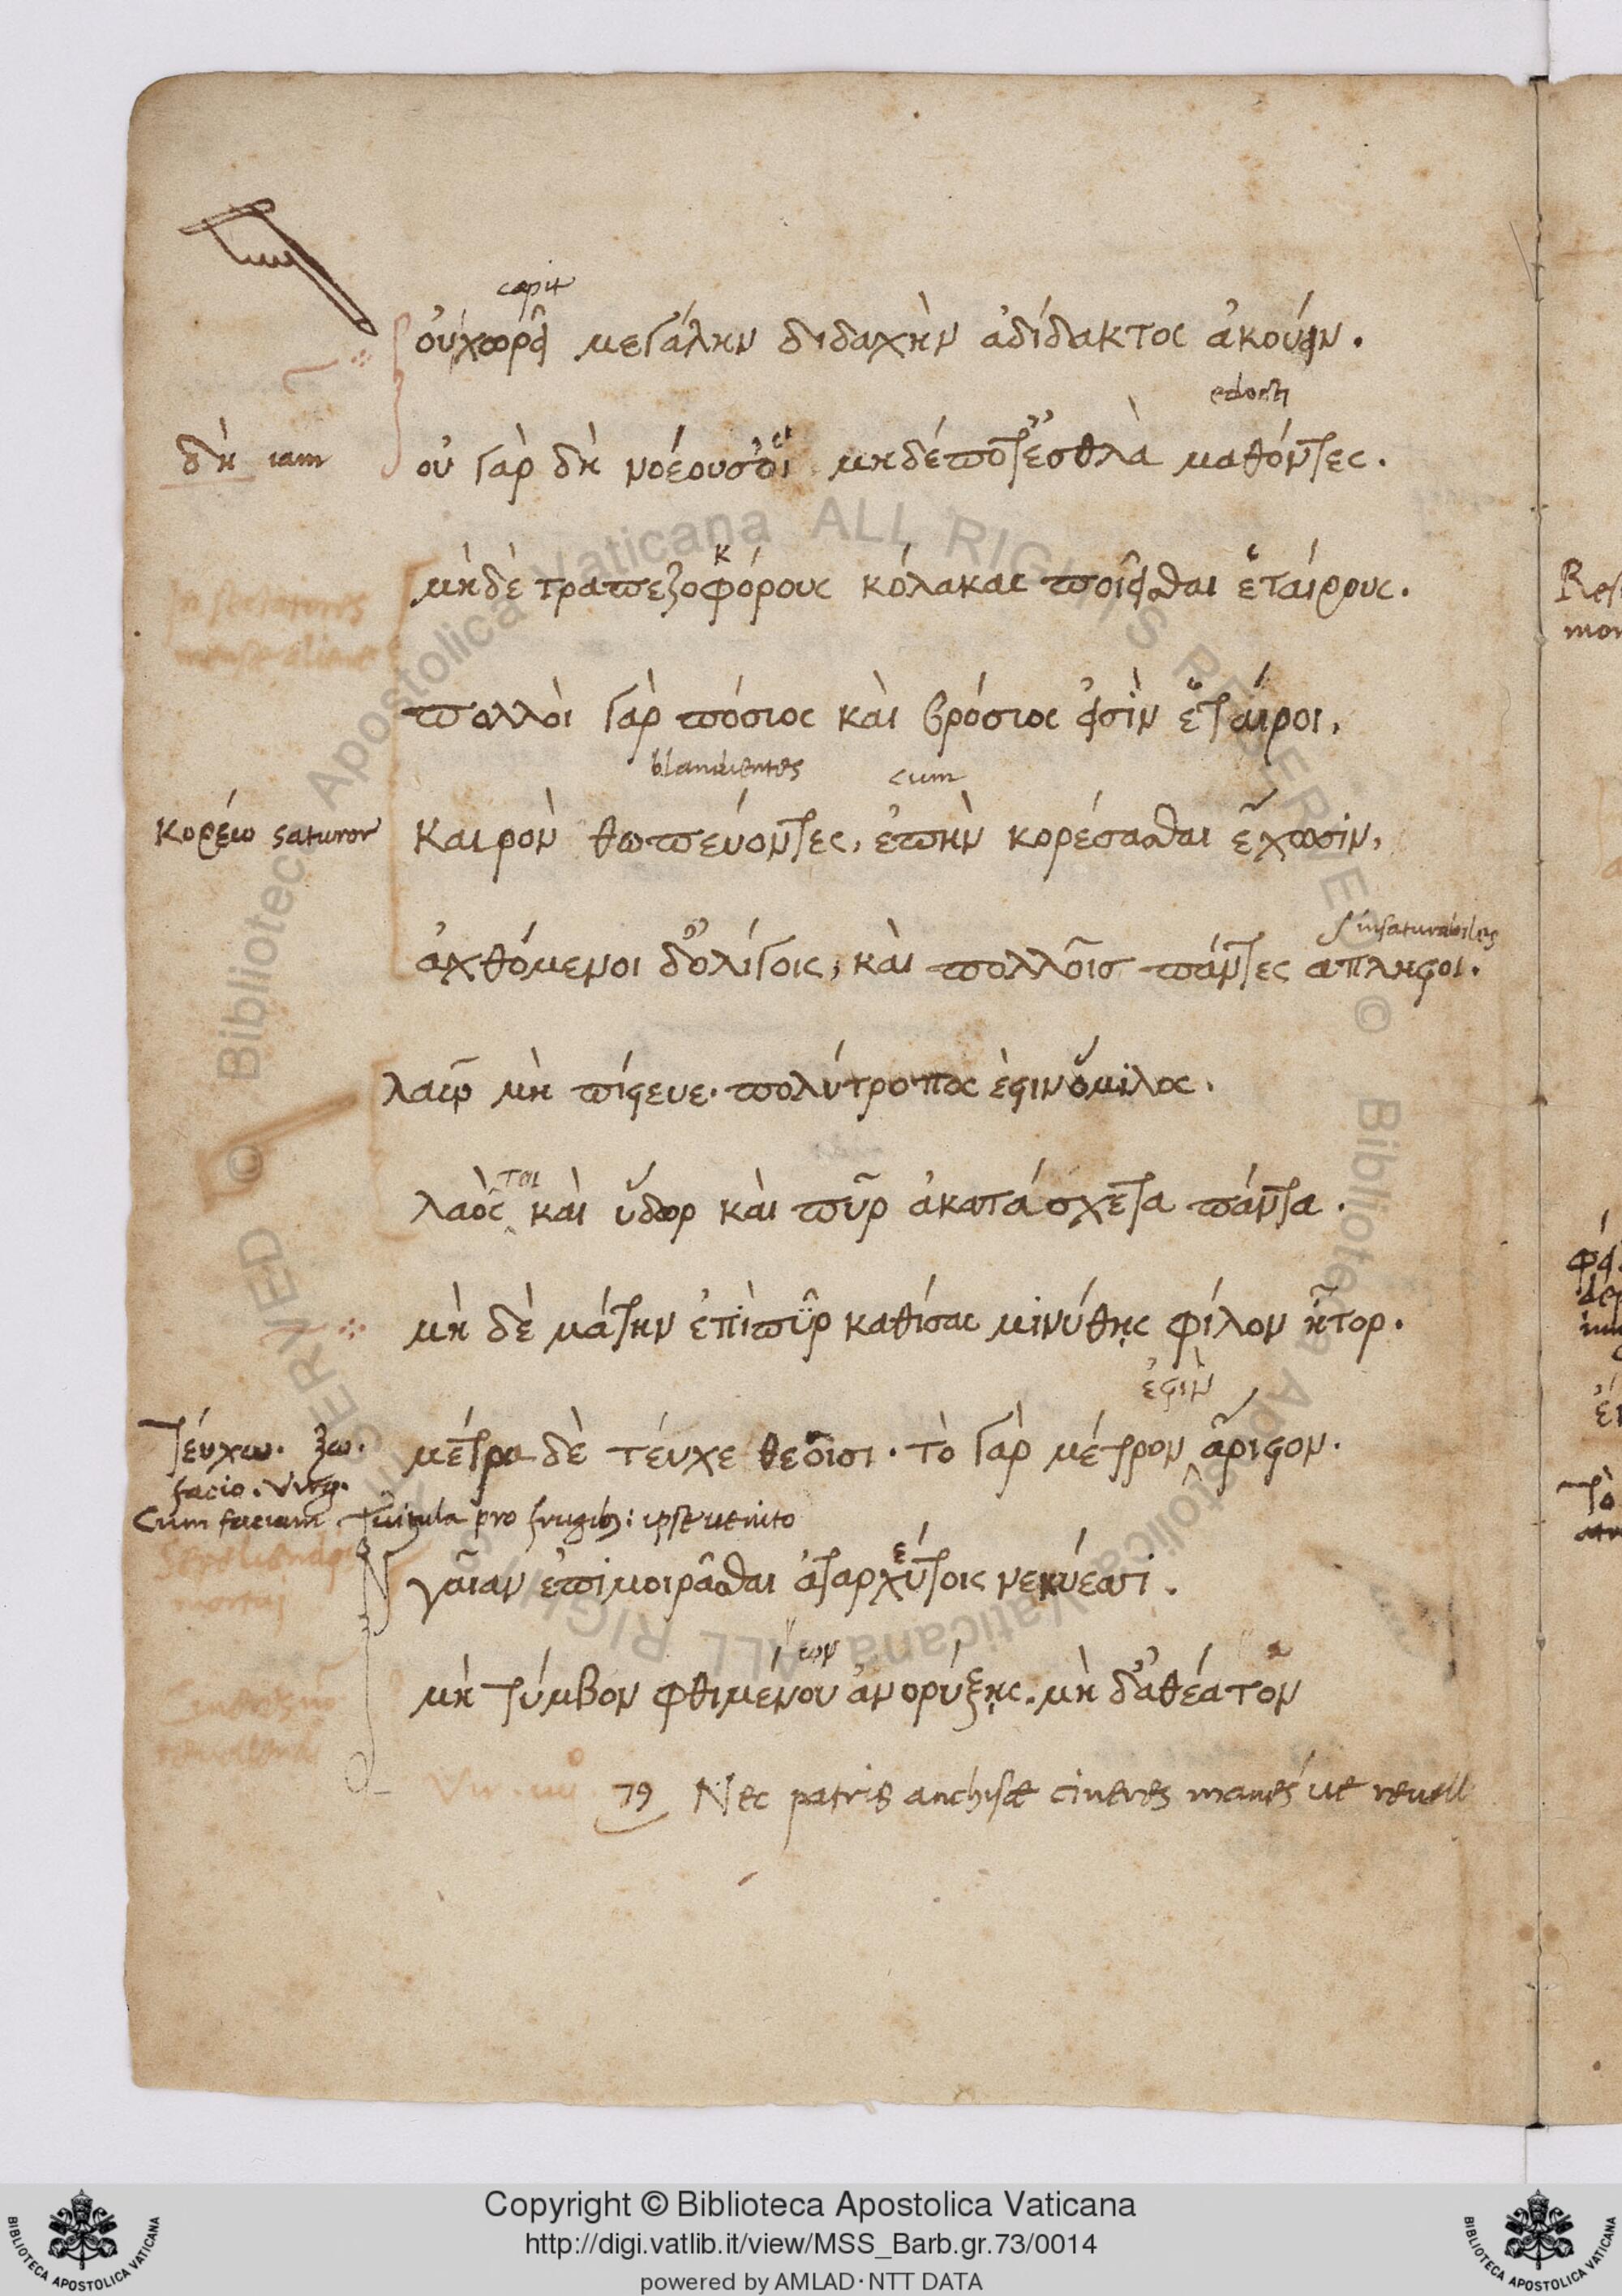 capit
οὐχωρεῖ μεγάλην διδαχὴν ἀδίδακτος ἀκούειν.
edocti
δὴ iam
οὐ γὰρ δὴ νοέουσ' οἱ μηδέποτ' ἐσθλὰ μαθόντες.
κ
μὴ δὲ τραπεζοφόρους κόλακας ποιεῖσθαι ἑταίρους.
πολλοὶ γὰρ πόσιος καὶ βρόσιος εἰσὶν ἑταῖροι,
blandientes cum
κορέω saturor
καιρὸν θωπεύοντες, ἐπὴν κορέσασθαι ἔχωσιν,
insaturabiles
ἀχθόμενοι δ' ὀλίγοις, καὶ πολλοῖσ πάντες απληστοι.
λαῷ μὴ πίστευε. πολύτροπος ἐστιν ὅμιλος.
τοι
λαὸς καὶ ὕδωρ καὶ πῦρ ἀκατάσχετα πάντα.
μὴ δὲ μάτην ἐπὶ πῦρ καθίσας μινύθῃς φίλον ἦτορ.
ἐστιν
τεύχω. ξω.
facio. Virg.
μέτρα δὲ τέυχε θεοῖσι. τὸ γὰρ μέτρον ἄριστον.
Cum faciam vitula pro frugibus: ipse venito
ε
γαῖαν ἐπιμοιρᾶσθαι ἀταρχύτοις νεκύεσσι.
ων
μὴ τύμβον φθιμένου ἀνορύξῃς. μὴ δ' ἀθέατον
79 Nec patris anchisæ cineres manes ve revell
Copyright © Biblioteca Apostolica Vaticana
http://digi.vatlib.it/view/MSS_Barb.gr.73/0014
powered by AMLAD·NTT DATA
BIBLIOTECA APOSTOLICA VATICANA
BIBLIOTECA APOSTOLICA VATICANA
© Biblioteca Apostolica Vaticana ALL RIGHTS RESERVED © Biblioteca Apostolica Vaticana ALL RIGHTS RESERVED